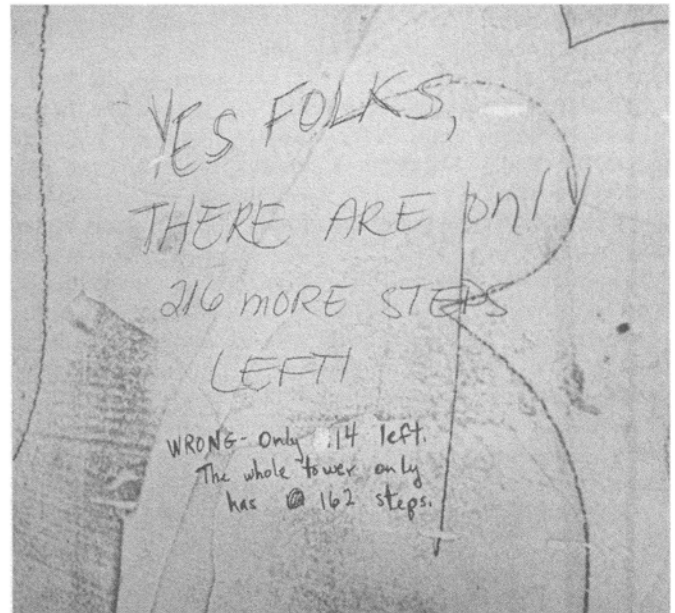 YES FOLKS,
THERE ARE only
216 MORE STEPS
LEFT!
WRONG- Only 14 left.
The whole tower only
has @ 162 steps.